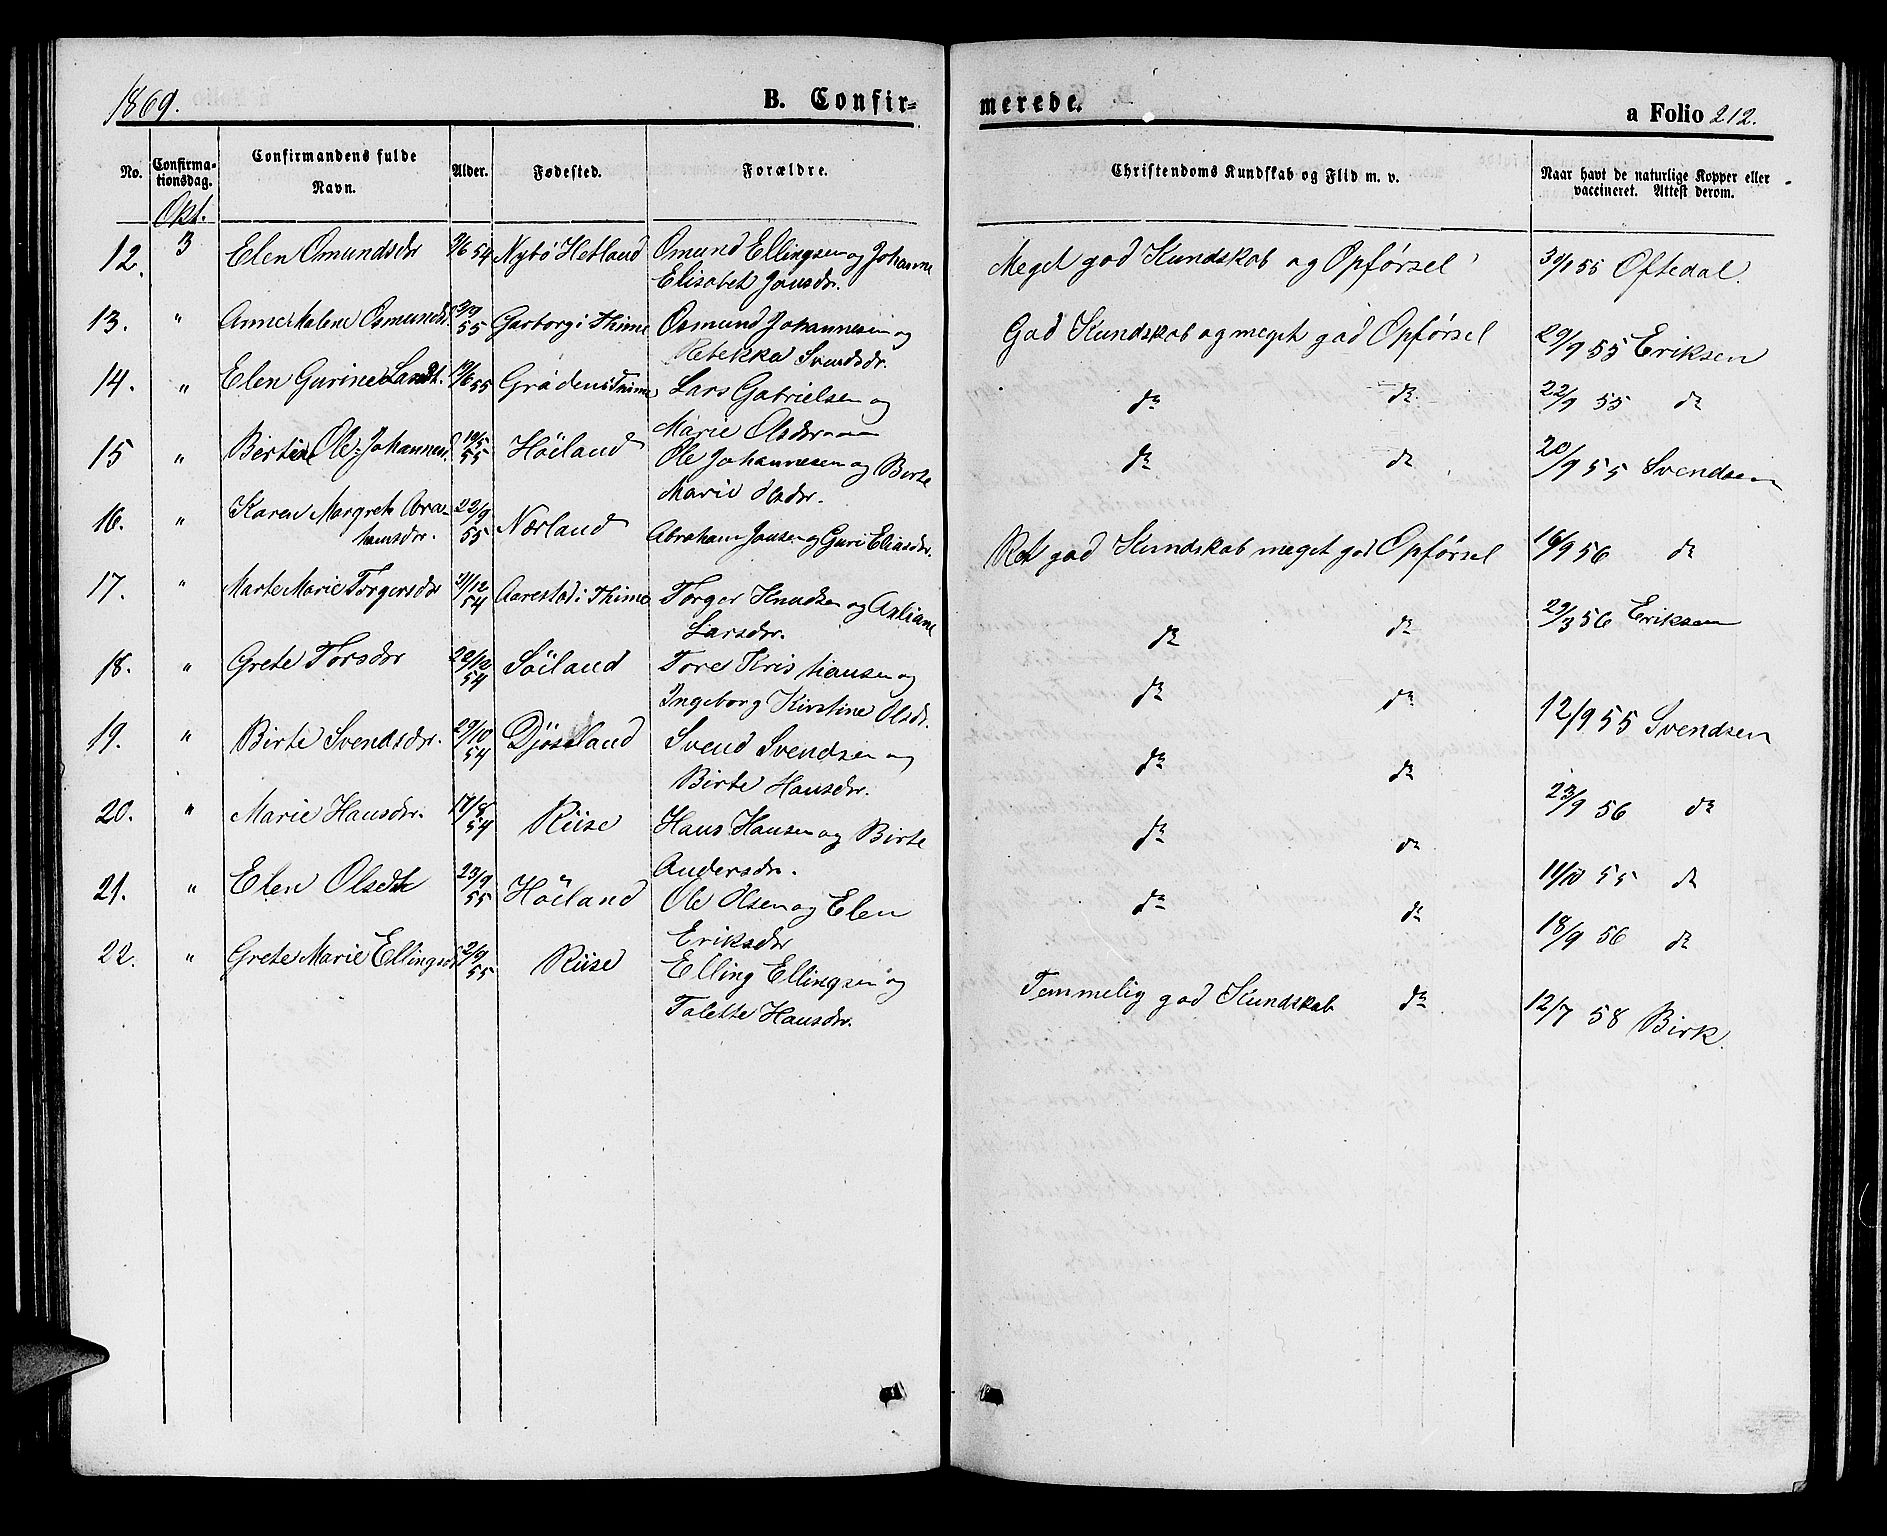 1869. B. Confirmerede. a Folio 212.
No. Confirmationsdag. Confirmandens fulde Navn. Alder. Fødested. Forældre. Christendoms Kundskab og Flid m. v. Naar havt de naturlige Kopper eller vaccineret. Attest derom.
Okt.
12. 3 Elen Omundsdr 9/6 54 Nybö Hetland Omund Ellingsen og Johanne Meget god Kundskab og Opførsel 30/1 55 Oftedal.
Elisabet Jonsdr.
13. " Anne Malene Osmundsd. 55 Garborg i Thime Osmund Johannesen og God Kundskab og meget god Opførsel 29/9 55 Eriksen
Rebekka Svendsdr.
14. " Elen Gurine Larsdt. 55 Gröden i Thime Lars Gabrielsen og do do 22/9 55 do
Marie Olsdr
15 " Bertine Ole. Johannesd. 19/5 55 Höiland Ole Johannesen og Berte do do 20/9 55 Svendsen
Marie Olsdr.
16. " Karen Margrete Abra- 22/9 55 Nærland Abraham Jonsen og Guri Eliasdr. Ret god Kundskab meget god Opførsel 16/9 56 do
hamsdr.
17. " Marte Marie Torgersdr 21/12 54 Aarestad i Thime Torger Knudsen og Asliane do do 29/3 56 Eriksen
Larsdr.
18. " Grete Torsdr 54 Söiland Tore Kristiansen og do do 12/9 55 Svendsen
Ingeborg Kirstine Olsdr.
19. " Birte Svendsdr. 29/10 54 Djösland Svend Svendsen og do do 23/9 56 do
Birte Hansdr.
20. " Marie Hansdr. 17/8 54 Riise Hans Hansen og Birte do do 11/10 55 do
Andersdr.
21. " Elen Olsdtr 23/9 55 Höiland Ole Olsen og Elen do do 18/9 56 do
Eriksdr
22. " Grete Marie Ellingsd 2/9 55 Riise Elling Ellingsen og Temmelig god Kundskab do 12/7 58 Birk.
Talette Hansdr.